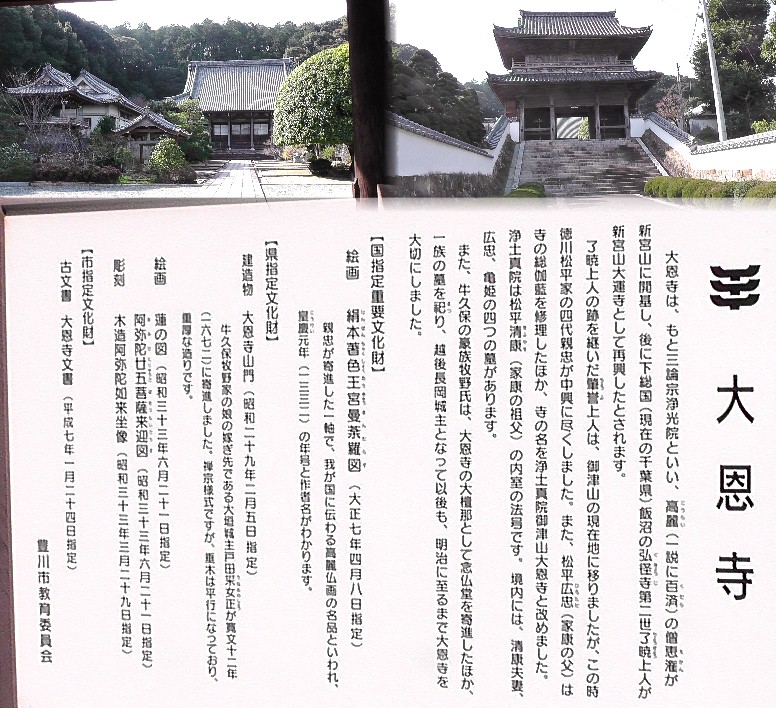 大恩寺
大恩寺は、もと三論宗浄光院といい、高麗（一説に百済）の僧恵潅が
新宮山に開基し、後に下総国（現在の千葉県）飯沼の弘経寺第二世了暁上人が
新宮山大運寺として再興したとされます。
了暁上人の跡を継いだ肇誉上人は、御津山の現在地に移りましたが、この時
徳川松平家の四代親忠が中興に尽くしました。また、松平広忠（家康の父）は
寺の総伽藍を修理したほか、寺の名を浄土真院御津山大恩寺と改めました。
浄土真院は松平清康（家康の祖父）の内室の法号です。境内には、清康夫妻、
広忠、亀姫の四つの墓があります。
また、牛久保の豪族牧野氏は、大恩寺の大檀那として念仏堂を寄進したほか、
一族の墓を祀り、越後長岡城主となって以後も、明治に至るまで大恩寺を
大切にしました。
【国指定重要文化財】
絵画　絹本著色王宮曼荼羅図（大正七年四月八日指定）
親忠が寄進した一軸で、我が国に伝わる高麗仏画の名品といわれ、
皇慶元年（一三一二）の年号と作者名がわかります。
【県指定文化財】
建造物　大恩寺山門（昭和二十九年二月五日指定）
牛久保牧野家の娘の嫁ぎ先である大垣城主戸田采女正が寛文十二年
（一六七二）に寄進しました。禅宗様式ですが、垂木は平行になっており、
重厚な造りです。
絵画　蓮の図（昭和三十三年六月二十一日指定）
阿弥陀廿五菩薩来迎図（昭和三十三年六月二十一日指定）
彫刻　木造阿弥陀如来坐像（昭和三十三年三月二十九日指定）
【市指定文化財】
古文書　大恩寺文書（平成七年一月二十四日指定）
豊川市教育委員会